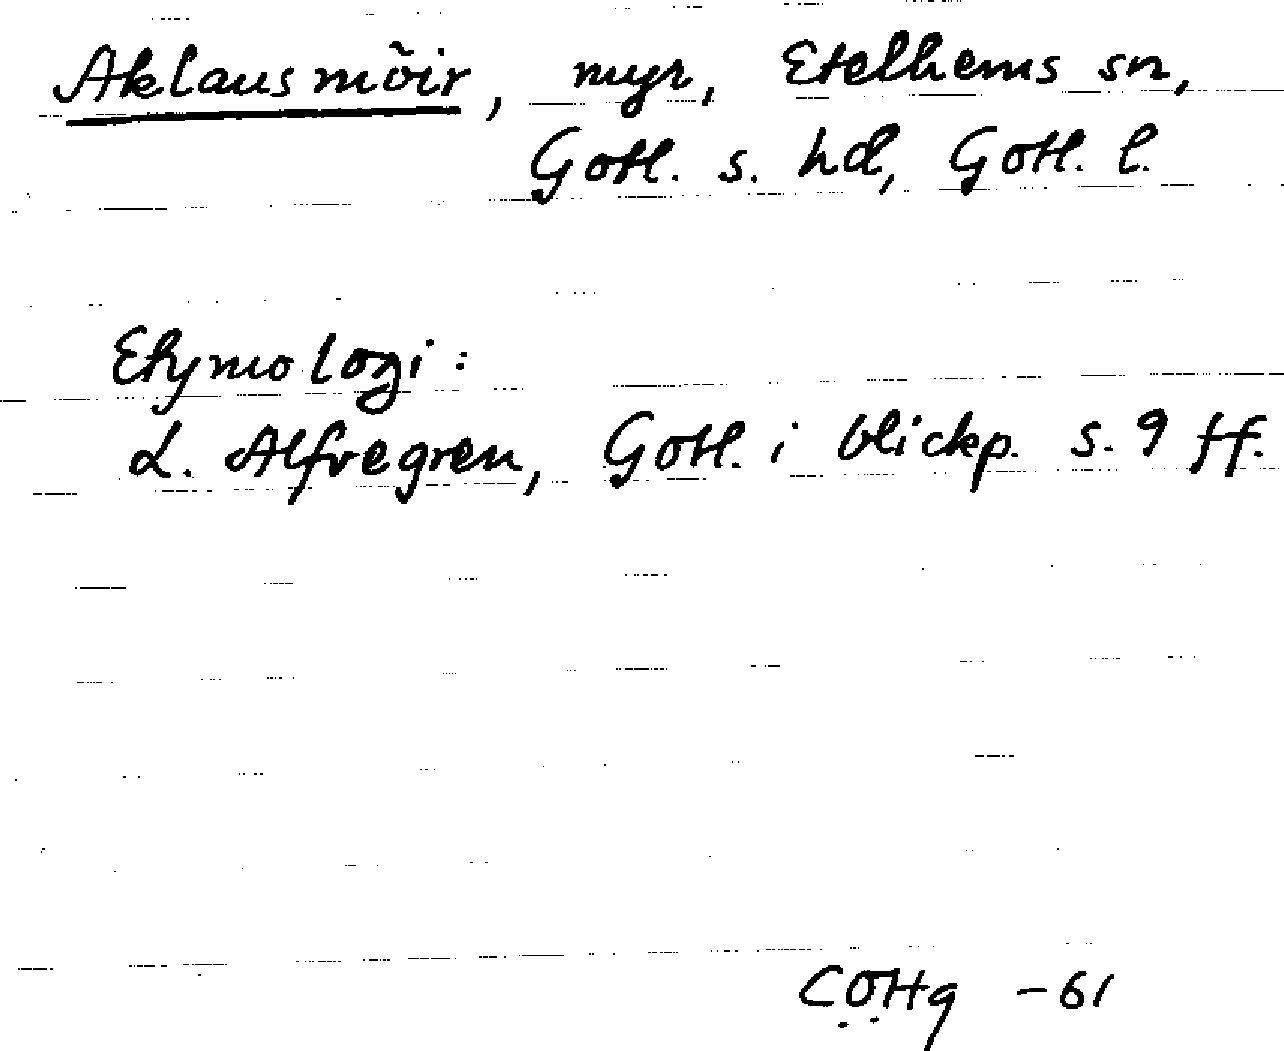 Aklausmõir, myr, Etelhems sn,
Gotl. s. hd, Gotl. l.
Etymologi:
L. Alfvegren, Gotl. i blickp. s. 9 ff.
COHg -61